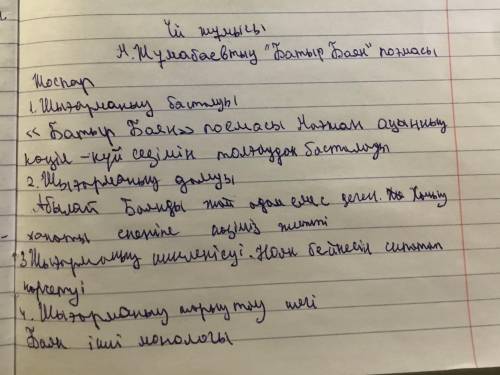 Үй жұмысы
М.Жұмабаевтың "Батыр Баян" поэмасы
Жоспар
1. Шығарманың басталуы
«Батыр Баян» поэмасы Мағжан ақынның
көңіл-күй сезімін толғаудан басталады
2. Шығарманың дамуы
Абылай Баянды жай адам емес деген.
3 Шығарманың шиеленісуі. Ноян бейнесін сипаттап
көрсетуі
4. Шығарманың шарықтау шегі
Баян ішкі монологы